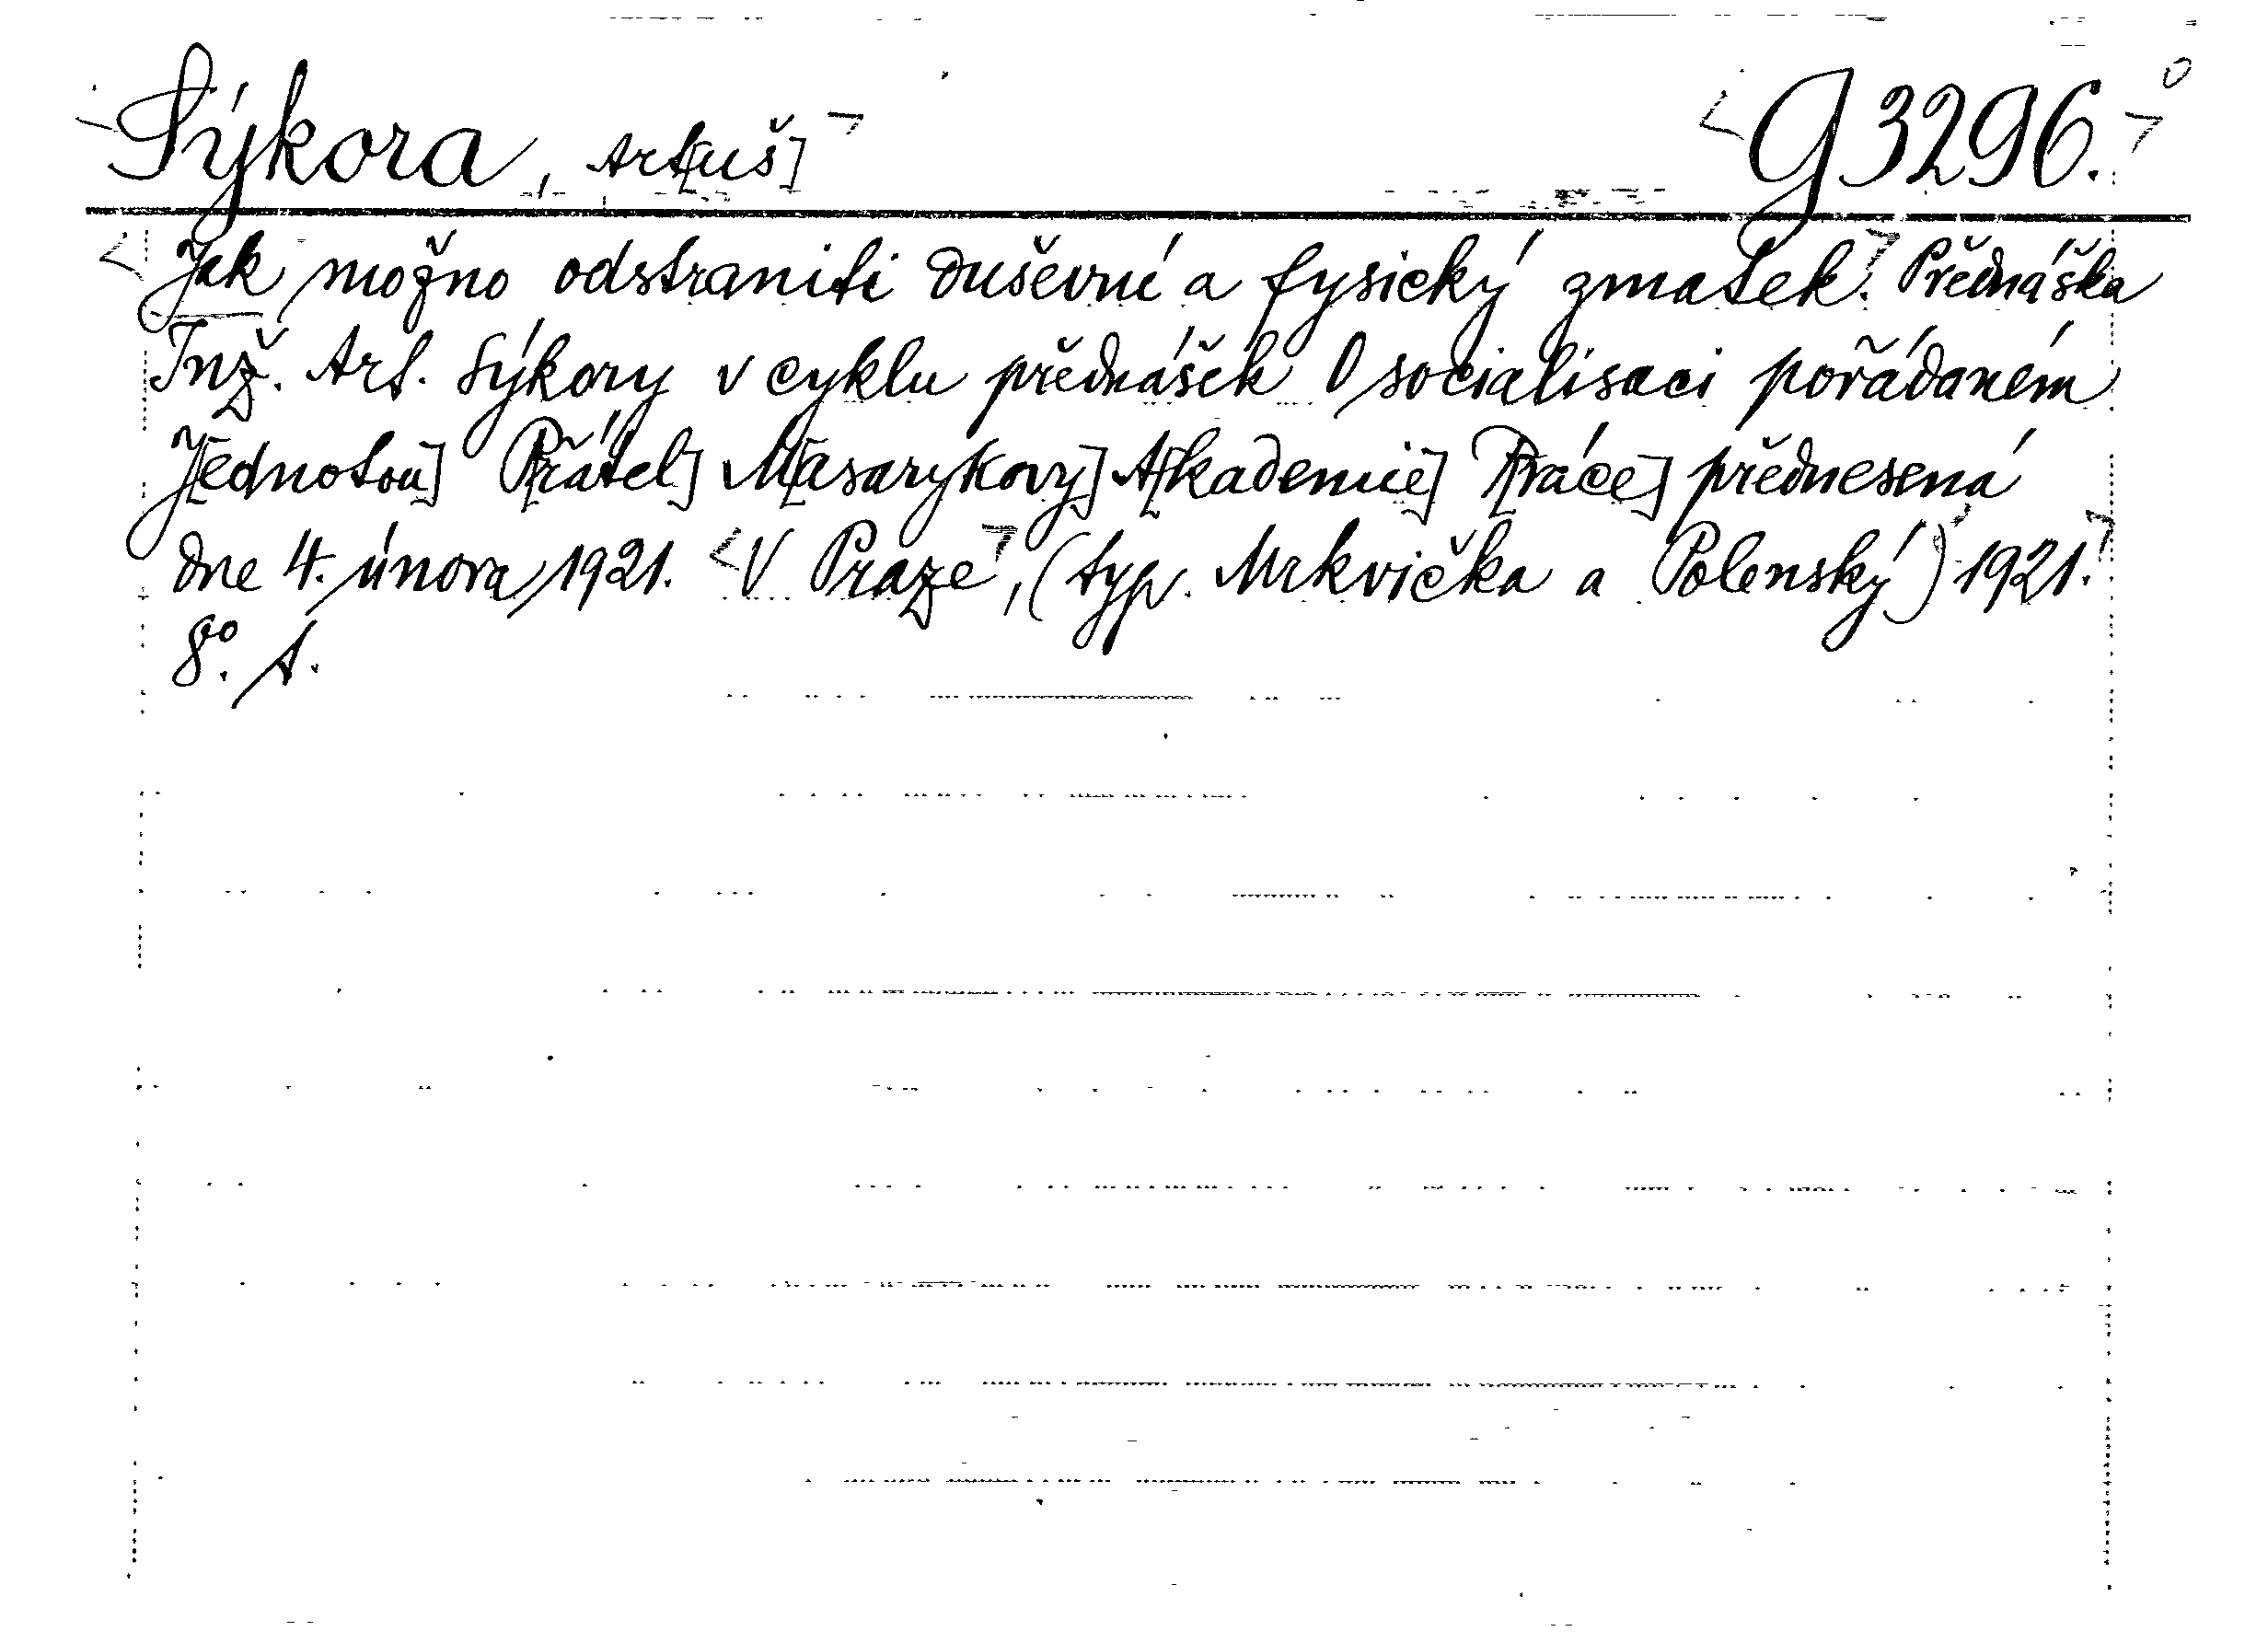 Sýkora, Art[uš] G 3296.
Jak možno odstraniti duševní a fysický zmatek. Přednáška
Inž. Art. Sýkory v cyklu přednášek O socialisaci pořádaném
J[ednotou] P[řátel] M[asarykovy] A[kademie] P[ráce] přednesená
dne 4. února 1921. V Praze, (typ. Mrkvička a Polenský) 1921.
8°. s.